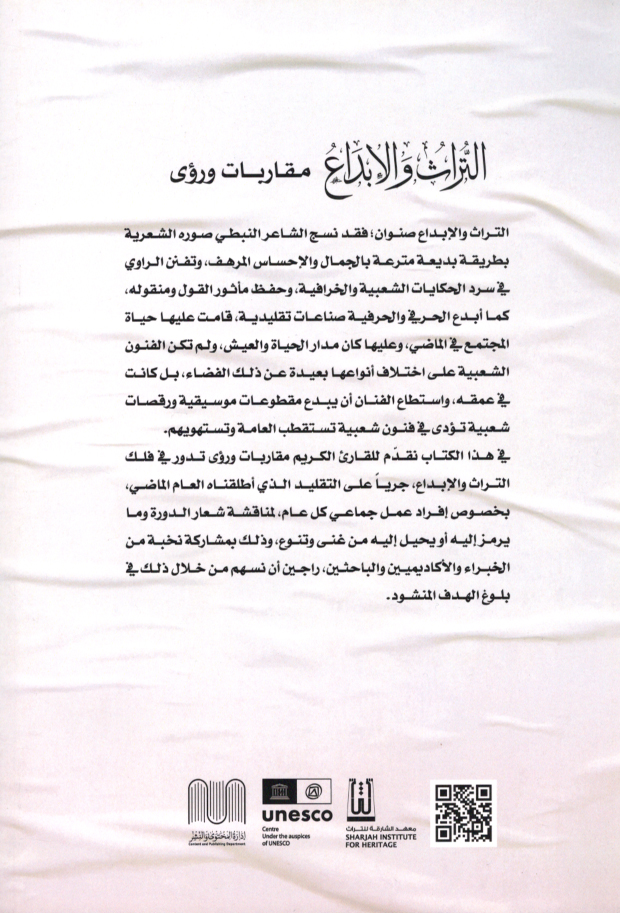 التُّرَاثُ وَالإِبْدَاعُ مقاربات ورؤى
التراث والإبداع صنوان؛ فقد نسج الشاعر النبطي صوره الشعرية
بطريقة بديعة مترعة بالجمال والإحساس المرهف، وتفنن الراوي
في سرد الحكايات الشعبية والخرافية، وحفظ مأثور القول ومنقوله،
كما أبدع الحرفي والحرفية صناعات تقليدية، قامت عليها حياة
المجتمع في الماضي، وعليها كان مدار الحياة والعيش، ولم تكن الفنون
الشعبية على اختلاف أنواعها بعيدة عن ذلك الفضاء، بل كانت
في عمقه، واستطاع الفنان أن يبدع مقطوعات موسيقية ورقصات
شعبية تؤدى في فنون شعبية تستقطب العامة وتستهويهم.
في هذا الكتاب نقدّم للقارئ الكريم مقاربات ورؤى تدور في فلك
التراث والإبداع، جرياً على التقليد الذي أطلقناه العام الماضي،
بخصوص إفراد عمل جماعي كل عام، لمناقشة شعار الدورة وما
يرمز إليه أو يحيل إليه من غنى وتنوع، وذلك بمشاركة نخبة من
الخبراء والأكاديميين والباحثين، راجين أن نسهم من خلال ذلك في
بلوغ الهدف المنشود.
معهد الشارقة للتراث
SHARJAH INSTITUTE
FOR HERITAGE
unesco
Centre
Under the auspices
of UNESCO
إدارة المحتوى والنشر
Content and Publishing Department